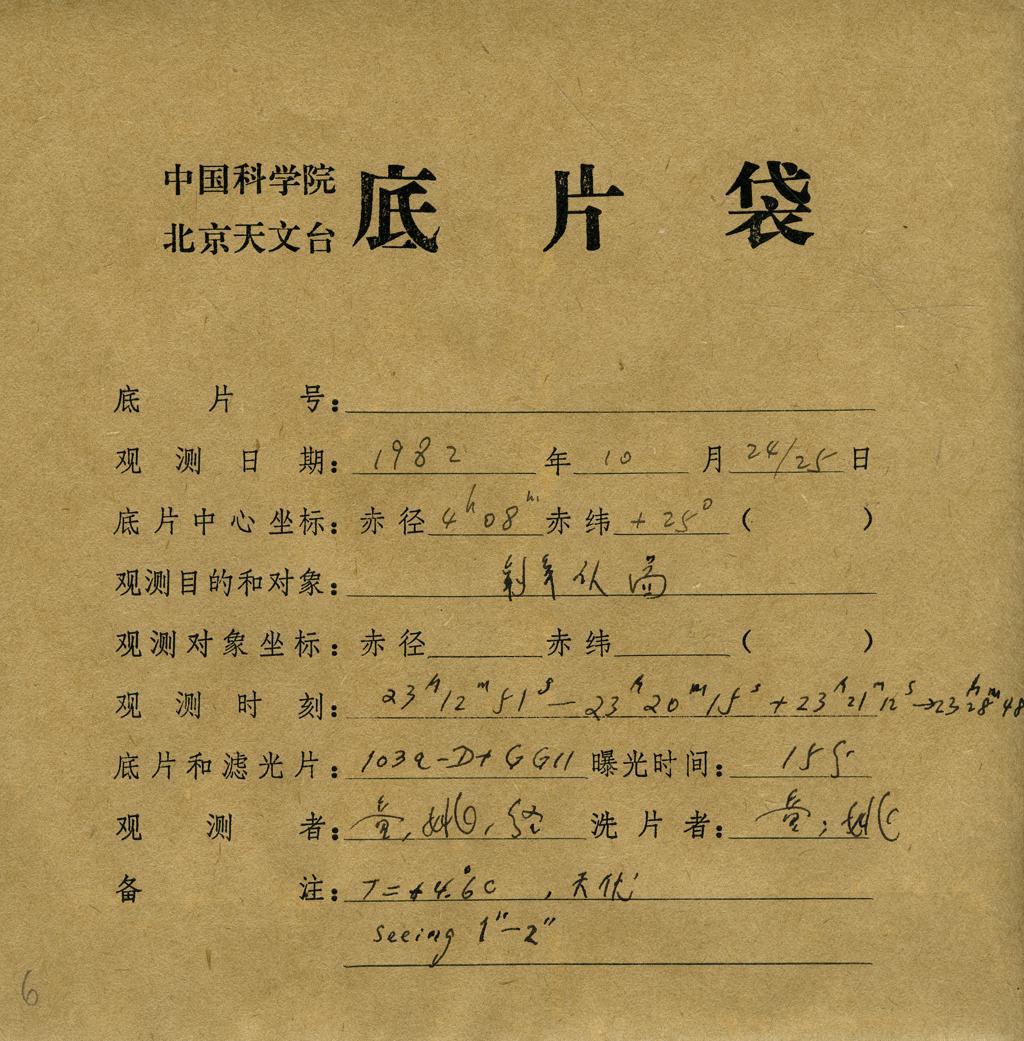 中国科学院
北京天文台 底片袋
底片号:
观测日期: 1982 年 10 月 24/25 日
底片中心坐标: 赤径 4h08m 赤纬 +25° ( )
观测目的和对象:
观测对象坐标: 赤径 赤纬 ( )
观测时刻: 23h12m51s — 23h20m15s + 23h21m12s → 23h28m48
底片和滤光片: 103a-D+GG11 曝光时间: 15分
观测者: 童, 洗片者: 童,
备注: T=+4.°6C , 天优
seeing 1"-2"
6